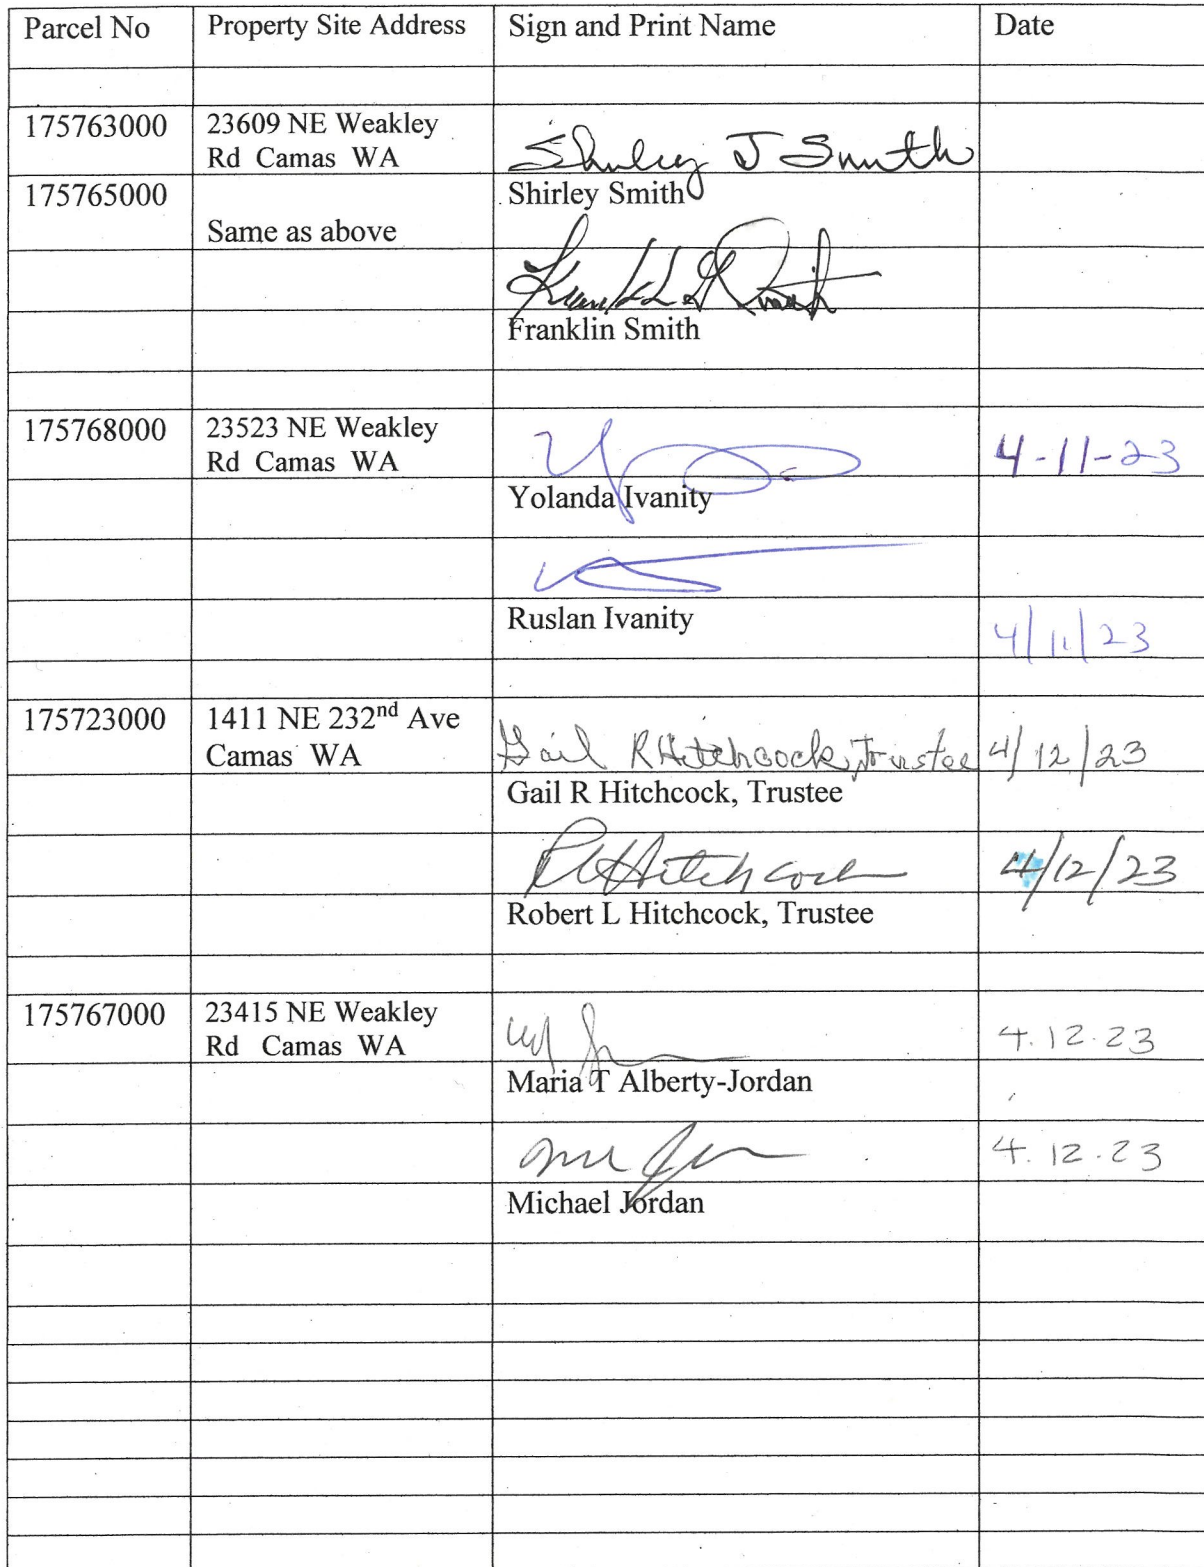 Parcel No Property Site Address Sign and Print Name Date
175763000 23609 NE Weakley
Rd Camas WA Shirley J Smith
175765000 Shirley Smith
Same as above
Franklin Smith
175768000 23523 NE Weakley
Rd Camas WA 4-11-23
Yolanda Ivanity
Ruslan Ivanity 4/11/23
175723000 1411 NE 232nd Ave
Camas WA Gail R Hitchcock, Trustee 4/12/23
Gail R Hitchcock, Trustee
RL Hitchcock 4/12/23
Robert L Hitchcock, Trustee
175767000 23415 NE Weakley
Rd Camas WA 4.12.23
Maria T Alberty-Jordan
4.12.23
Michael Jordan